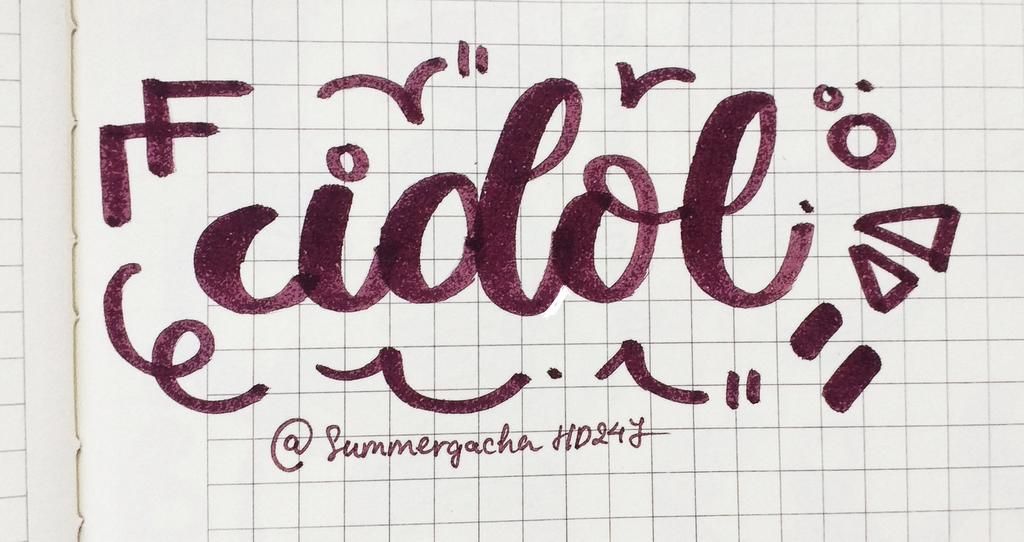 cidol
@Summergacha HD247